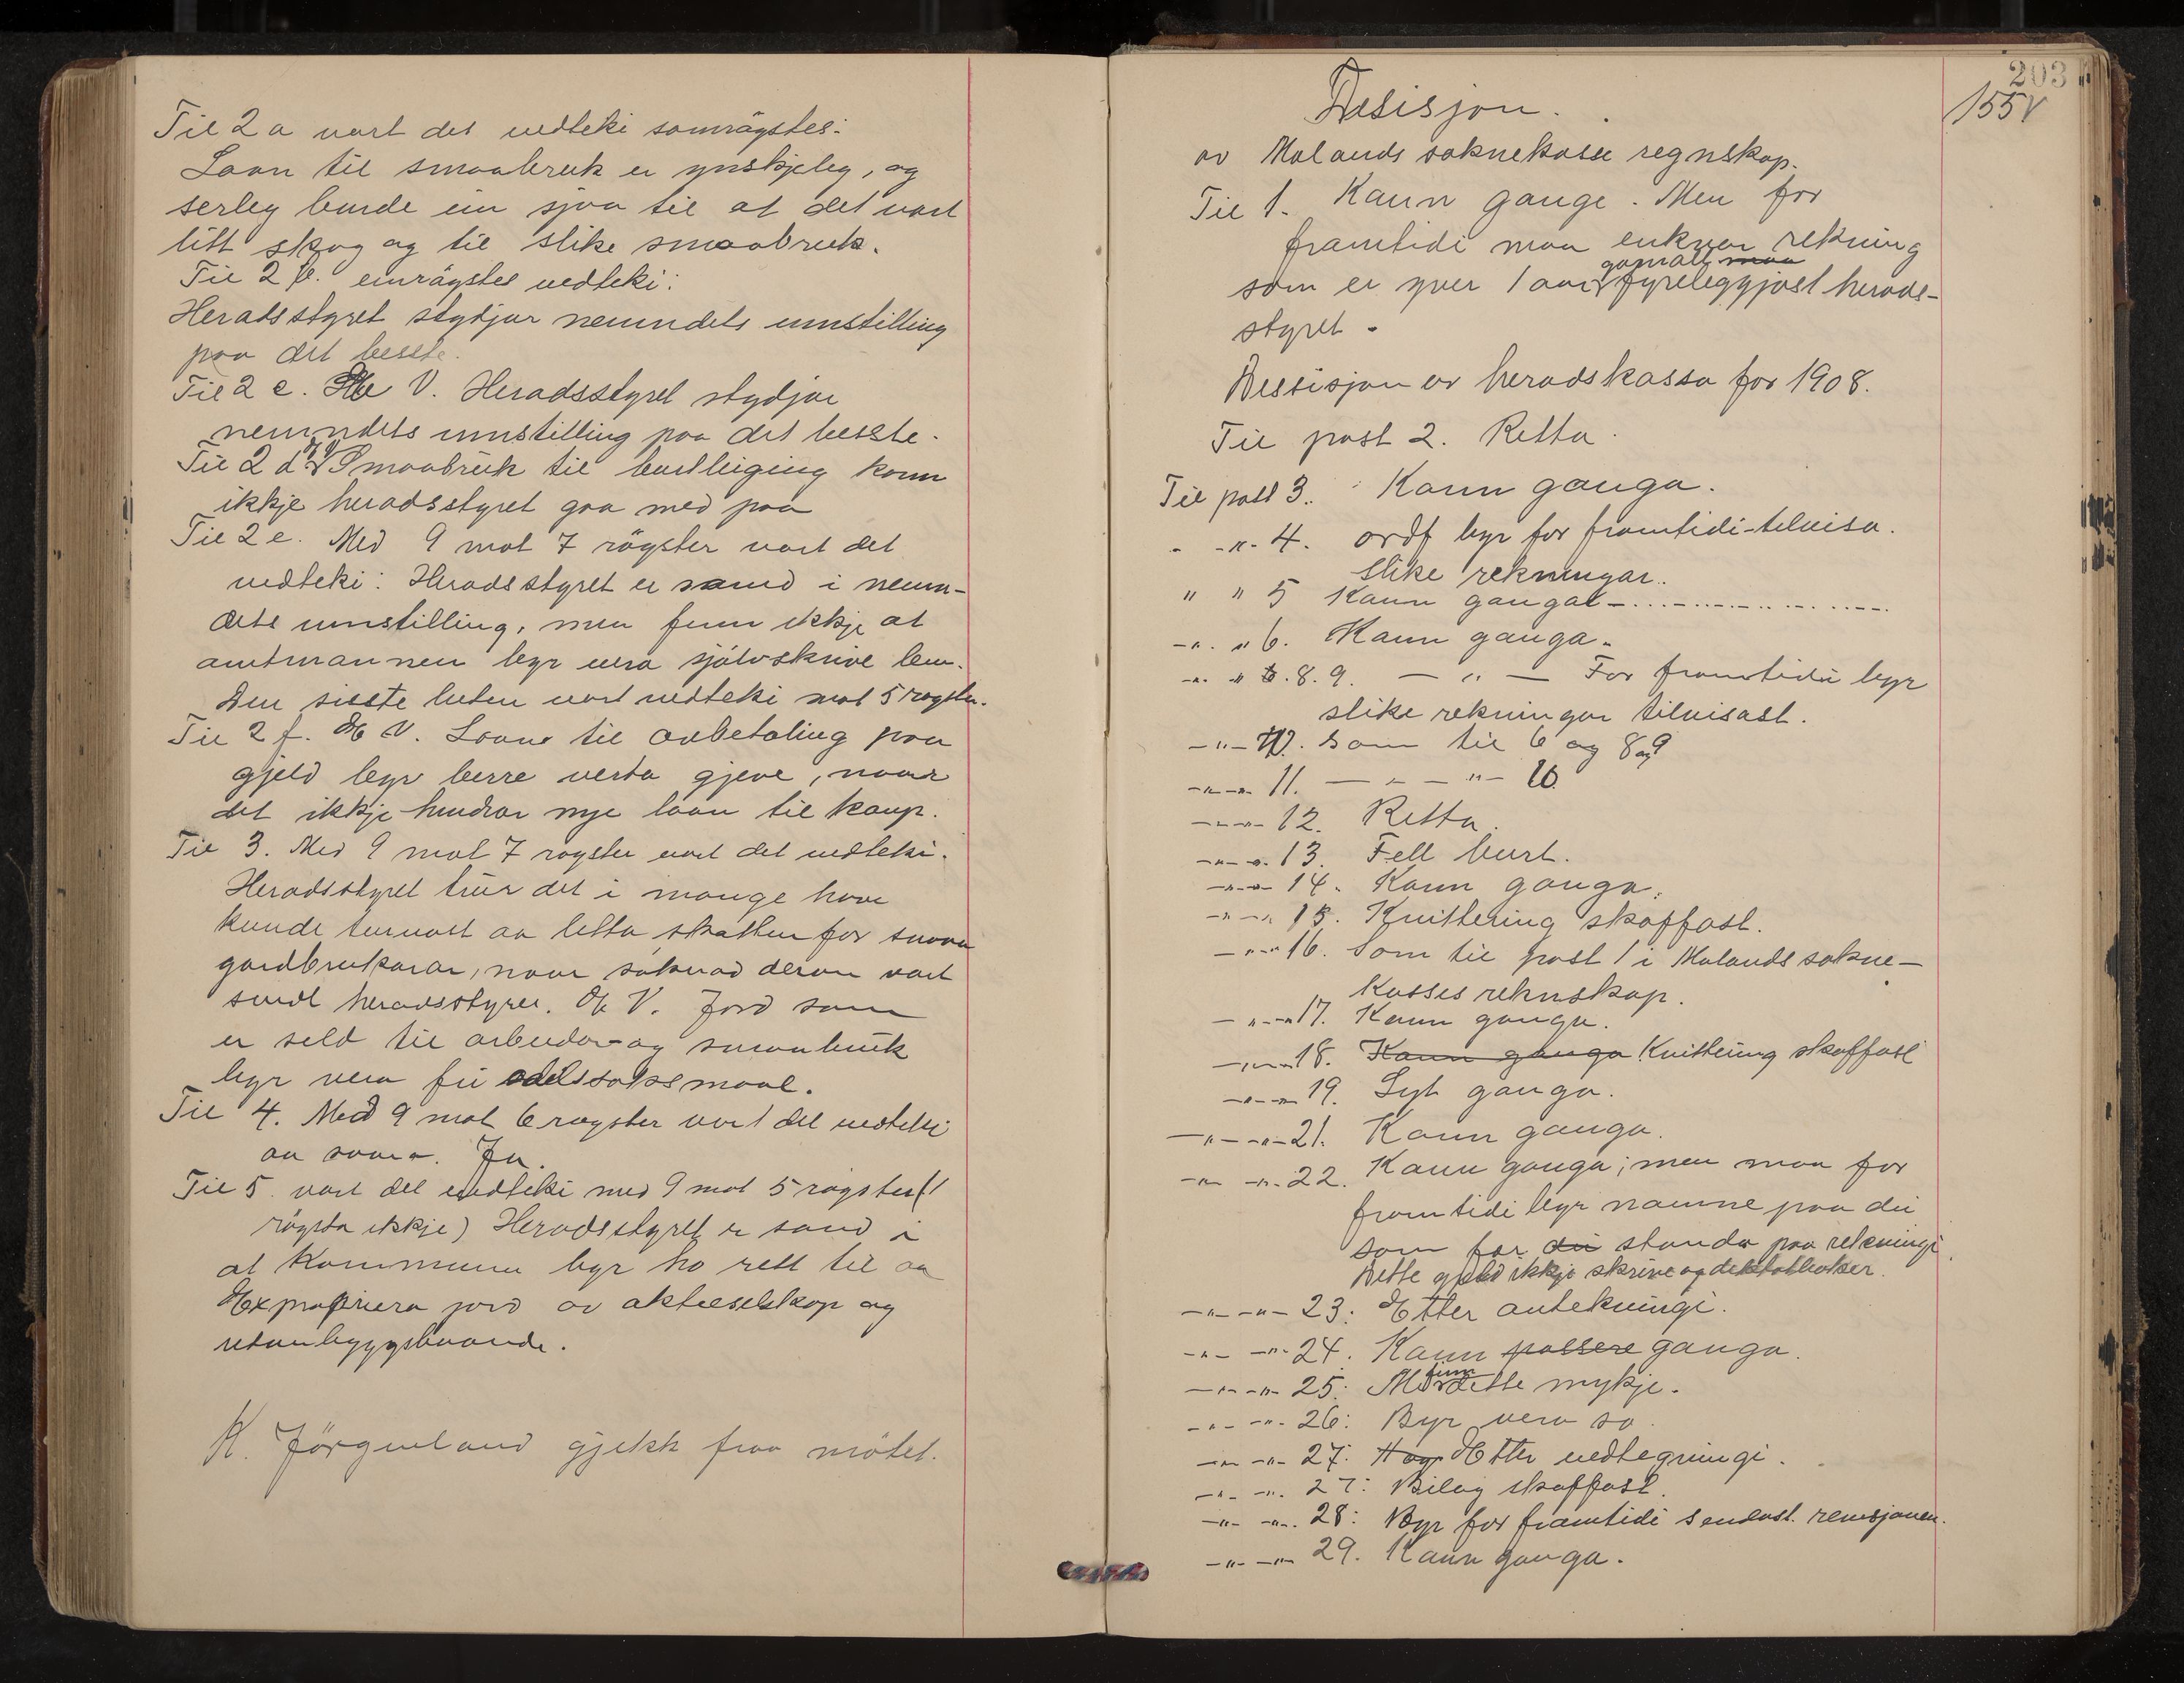 Til 2 a vart det vedteki samrøystes:
Laan til smaabruk er ynskjeleg, og
serleg burde ein sjaa til at det vart
litt skog og til slike smaabruk.
Til 2 b. einrøystes vedteki:
Heradsstyret stydjar nemndets innstilling
paa det besste.
Til 2 c. E V. Heradsstyret stydjar
nemndets innstilling paa det besste.
Til 2 d. E V Smaabruk til burtleiging konn
ikkje heradsstyret gaa med paa
Til 2 e. Med 9 mot 7 røyster vart det
vedteki: Heradsstyret er samd i nemn-
dets innstilling, men finn ikkje at
amtmannen byr vera sjølvskrive lem.
Den sisste luten vart vedteki mot 5 røyster.
Til 2 f. E V. Laane til avbetaling paa
gjeld byr berre verta gjeve, naar
det ikkje hindrar nye laan til kaup.
Til 3. Med 9 mot 7 røyster vart det vedteki.
Heradsstyret trur det i mange have
kunde turvast aa letta skatten for smaa
gardbrukarar, naar søknad derom vart
sendt heradsstyret. E V. Jord som
er seld til arbeidar- og smaabruk
byr vera fri odelssøksmaal.
Til 4. Med 9 mot 6 røyster vart det vedteki
aa svara. Ja.
Til 5. vart det vedteki med 9 mot 5 røyster (1
røysta ikkje) Heradsstyret er samd i
at Kommunen byr ha rett til aa
Expropriera jord av aktieselskap og
utanbyggsbuande.
K. Jørgenland gjekk fraa møtet.
203
155V
Desisjon.
av Molands soknekasse regnskap.
Til 1. Kann gange. Men for
framtidi maa enkvar rekning
gamall maa
som er yver 1 aar fyreleggjast herads-
styret.
Dessisjon av heradskassa for 1908.
Til post 2. Retta.
Til post 3. Kann ganga.
- -"- 4. ordf byr for framtidi tilvisa
slike rekningar.
" " 5 Kann ganga
-"- " 6. Kann ganga.
-"- " 8. 9. — " — For framtidi byr
slike rekningar tilvisast.
-"- 10. Som til 6 og 8 og 9
-"-"- 11. — " — " — 10.
-"-"- 12. Retta.
-"-"- 13. Fell burt.
-"-"- 14. Kann ganga.
-"-"- 15. Kvittering skaffast.
-"-"- 16. Som til post 1 i Molands sokne-
kasses reknskap.
-"-"- 17. Kann ganga.
-"-"- 18. Kann ganga Kvittering skaffast
-"-"- 19. Lyt ganga.
-"-"- 21. Kann ganga.
-"-"- 22. Kann ganga; men maa for
framtidi byr namne paa dei
som far dei standa paa rekningi.
Dette gjeld ikkje skrive og
-"-"- 23: Etter antekningi.
-"-"- 24. Kann passere ganga.
-"-"- 25: dette mykje.
-"-"- 26: Byr vera so.
-"-"- 27: Etter vedtegningi.
-"-"- 27: Bilag skaffast.
-"-"- 28: Byr for framtidi sendast revisjonen.
-"-"- 29. Kann ganga.